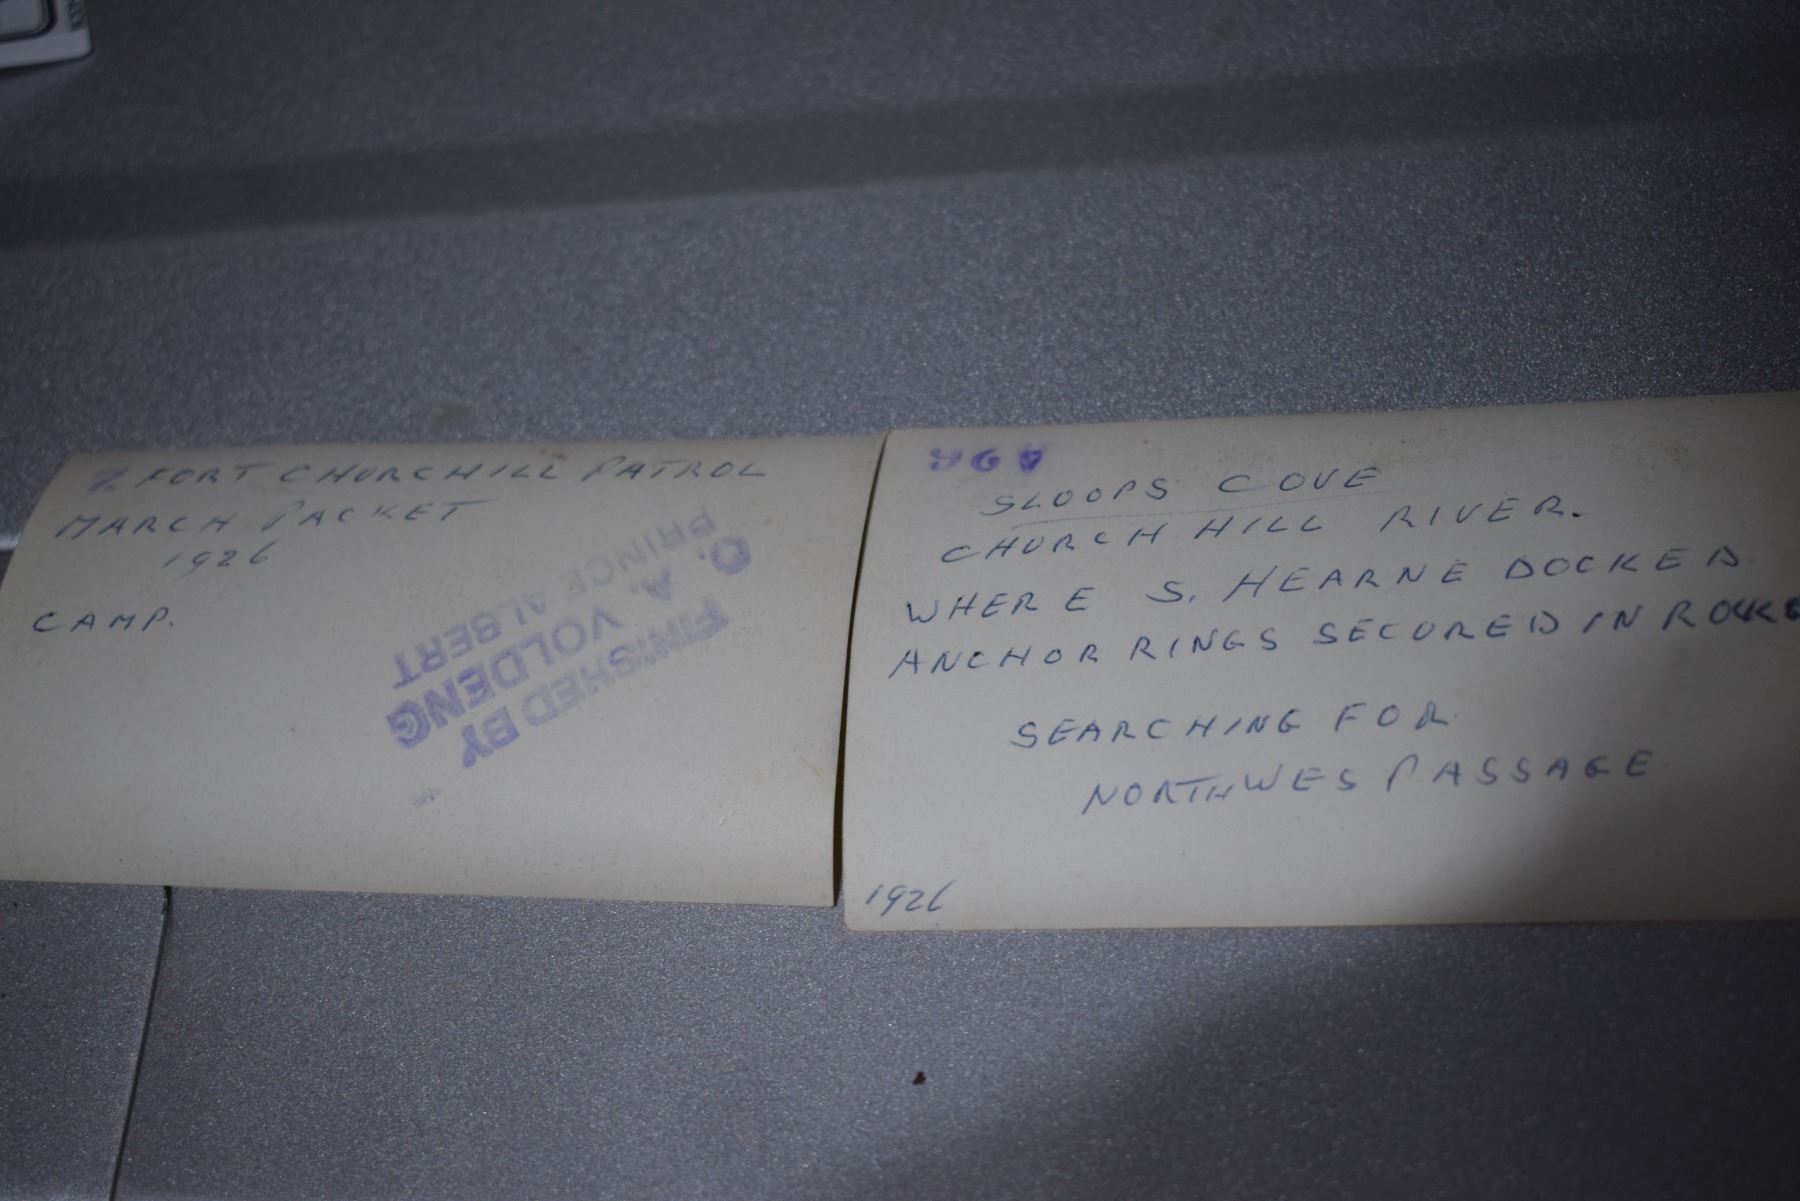 FORT CHURCHILL PATROL
MARCH PACKET
1926
CAMP.
FINISHED BY
O. A. VOLDENG
PRINCE ALBERT
SLOOPS COVE
CHURCH HILL RIVER.
WHERE S. HEARNE DOCKED.
ANCHOR RINGS SECURED IN
SEARCHING FOR
NORTHWES PASSAGE
1926